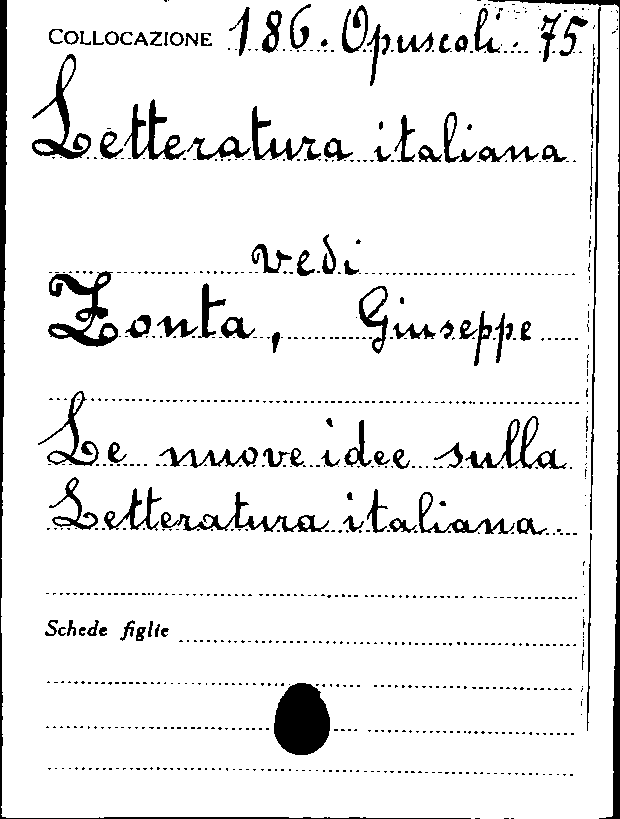 COLLOCAZIONE 186. Opuscoli. 75
Letteratura italiana
vedi
Zonta, Giuseppe
Le nuove idee sulla
Letteratura italiana.
Schede figlie